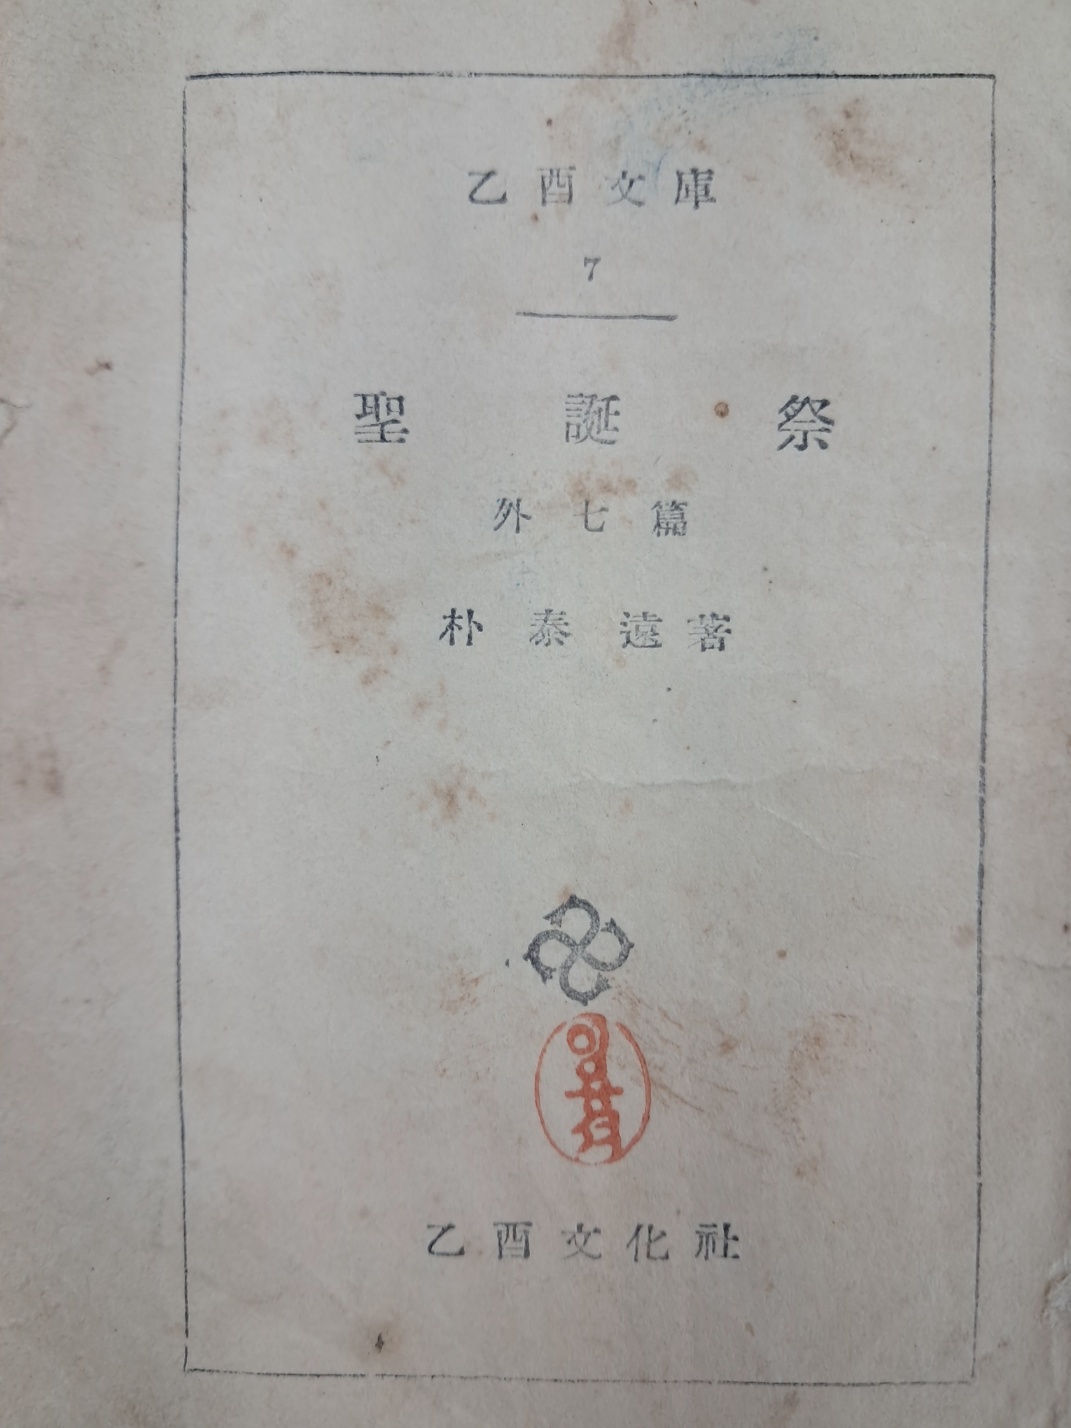 乙酉文庫
7
聖誕祭
外七篇
朴泰遠著
乙酉文化社